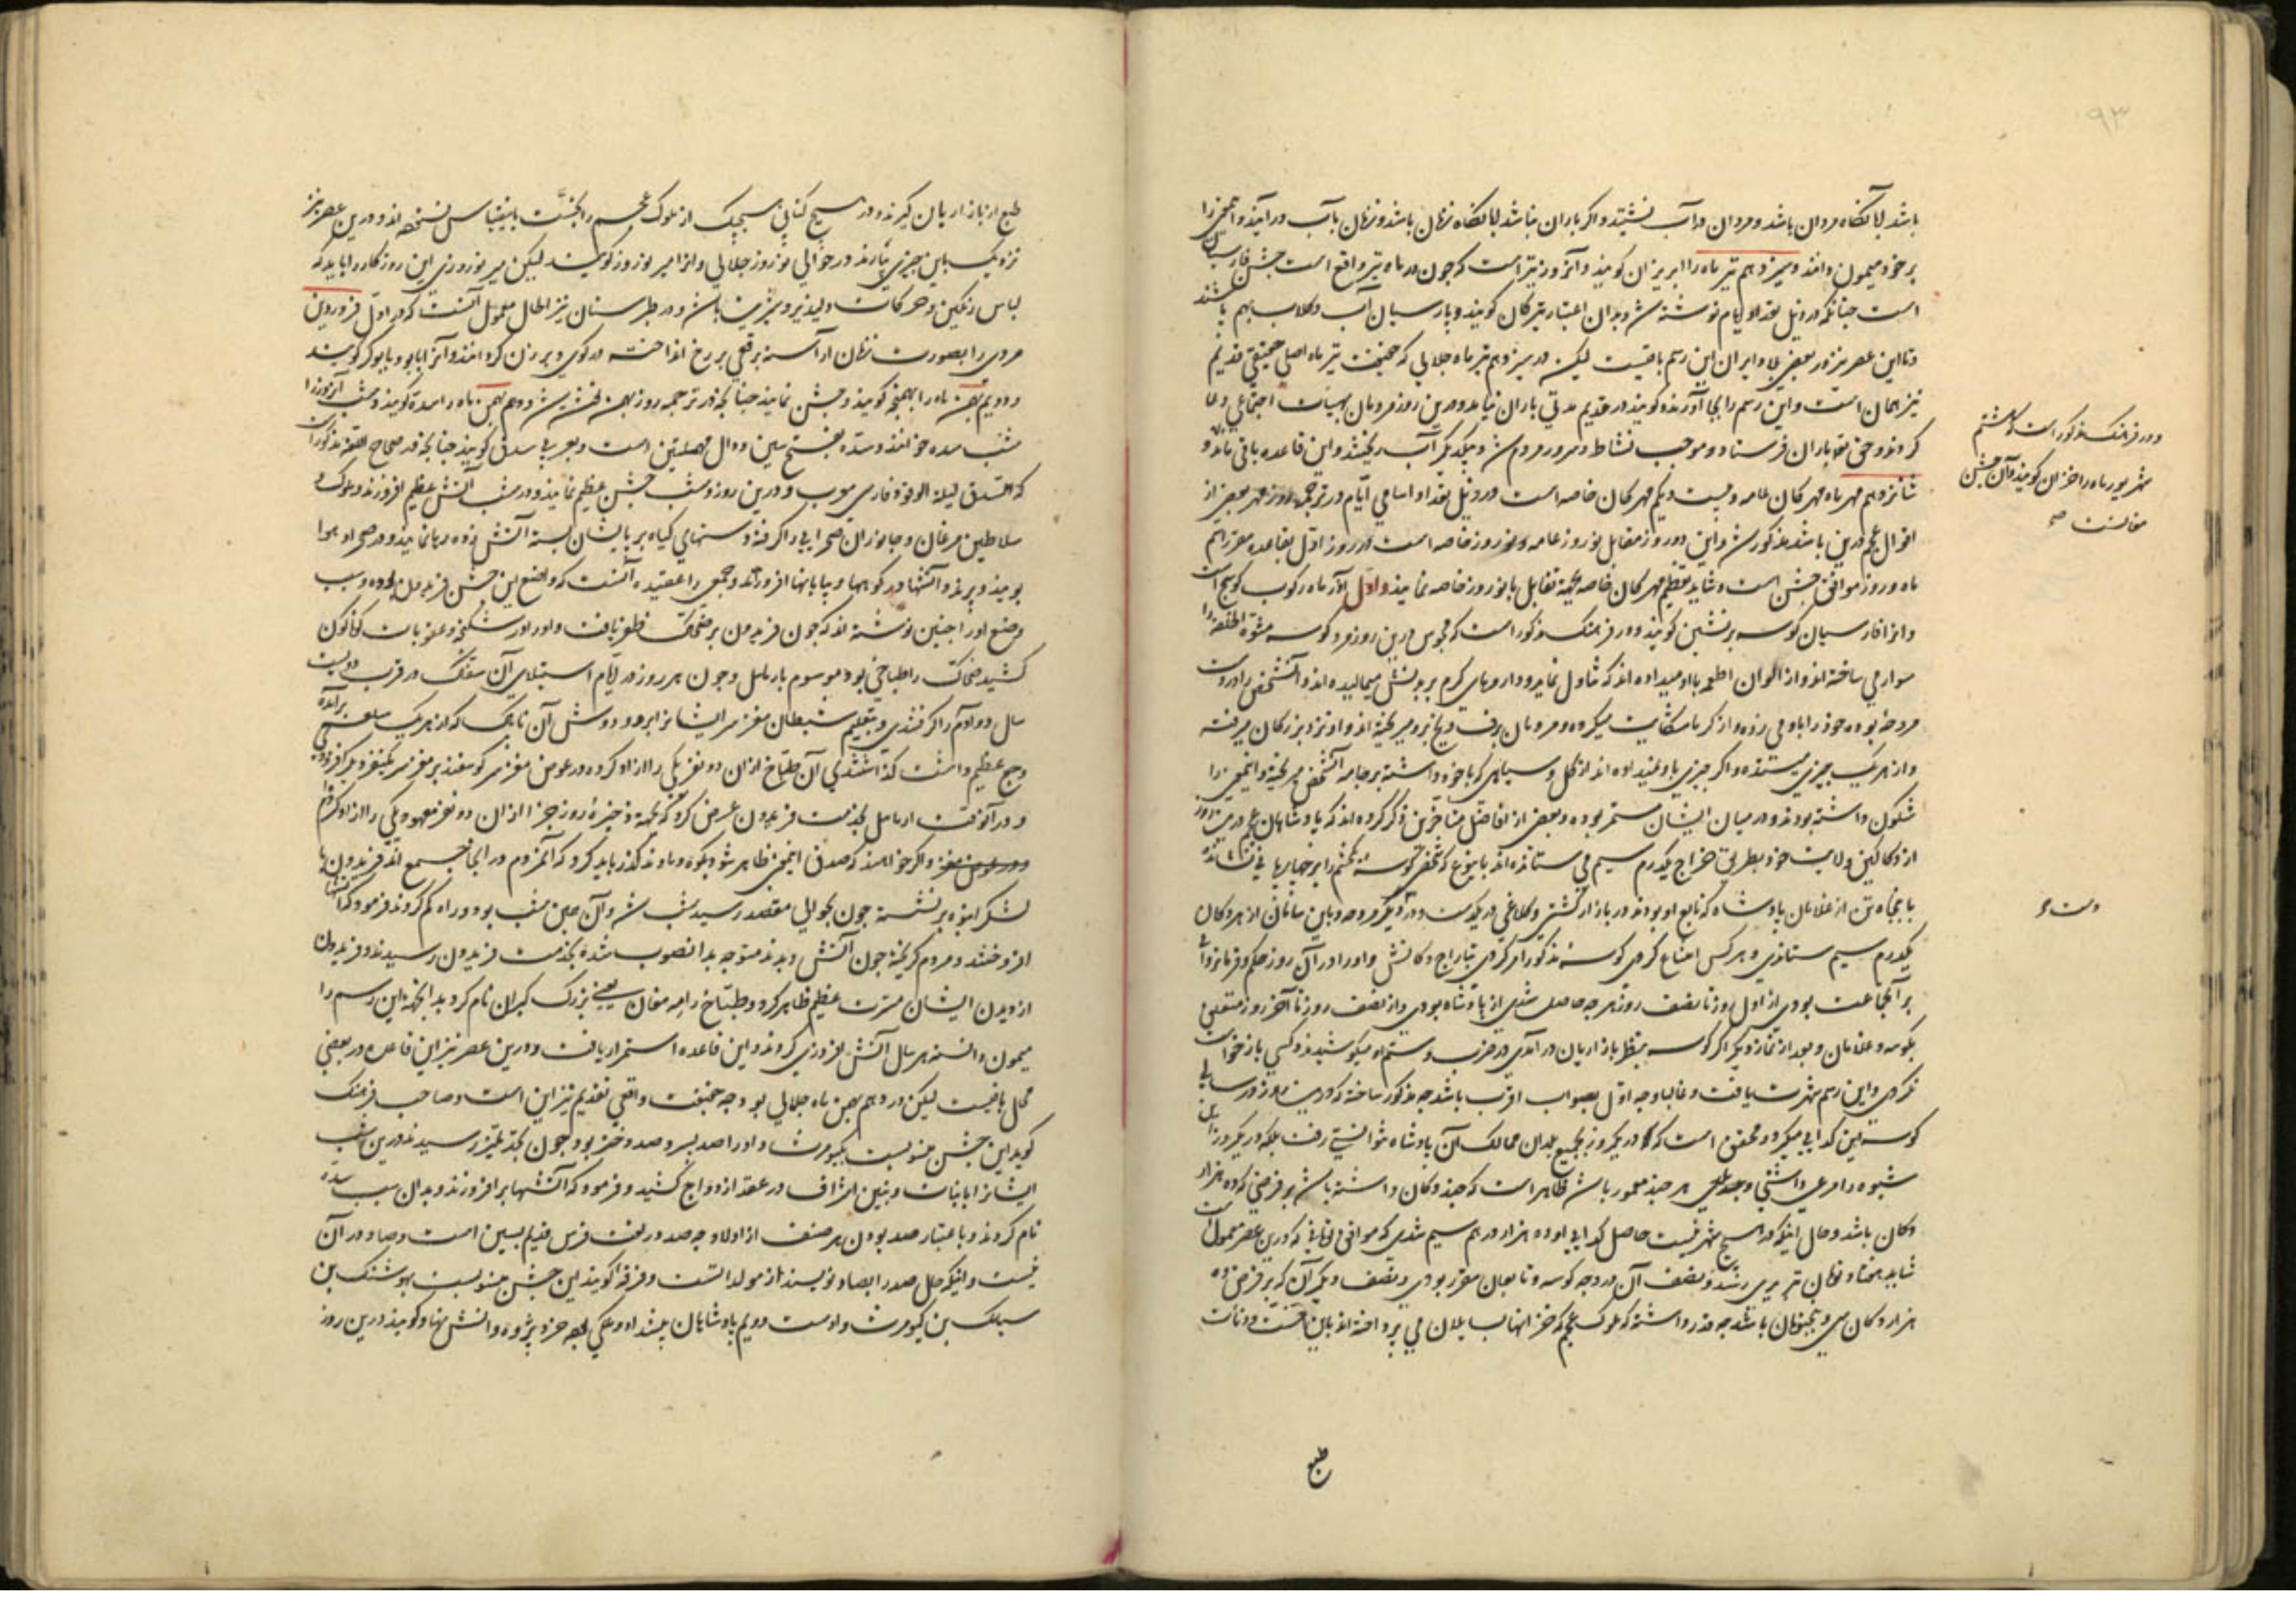 ۹۳
باشد لباسگاه مردان باشد و مردان در آب نشینند و اگر باران نباشد لباسگاه زنان باشد و زنان بآب درآیند و اینمعنی را
بر خود میمون دانند و سیزدهم تیر ماه را ابریزان گویند و آنروز تیر است که چون در ماه تیر واقع است جشن فارسیان
است چنانکه در ذیل تعداد ایام نوشته شد و بدان اعتبار تیرگان گویند و پارسیان آب و گلاب بهم پاشند
و تا این عصر نیز در بعضی بلاد ایران این رسم باقیست لیکن در سیزدهم تیر ماه جلالی که حقیقت تیر ماه اصلی حقیقی قدیم
نیز همان است و این رسم را بجا آورند و گویند در قدیم مدتی باران نیامد و درین روز مردمان بهیأت اجتماعی دعا
کردند و حق تعالی باران فرستاد و موجب نشاط و سرور مردم شد و بیکدیگر آب ریختند و این قاعده باقی ماند و
شانزدهم مهر ماه مهرکان عامه و بیست و یکم مهرکان خاصه است در ذیل تعداد اسامی ایام در ترجمه روز مهر بعضی از
اقوال عجم درین باب مذکور شد و این دو روز مقابل نوروز عامه و نوروز خاصه است و در روز اول بقاعده مقرر اسم
ماه و روز موافق جشن است و شاید تعظیم مهرکان خاصه بجهة تقابل با نوروز خاصه نمایند و اول آذر ماه رکوب کوسج است
و آنرا فارسیان کوسه برنشین گویند و در فرهنگ مذکور است که مجوس درین روز مرد کوسه مشوه الخلقه را
سوار می ساخته اند و از الوان اطعمه باو میداده اند که تناول نماید و داروهای گرم بر بدنش میمالیده اند و آنشخص را در دست
مروحه بوده خود را باد می زده و از گرما شکایت میکرده و مردمان برف و یخ بر او میریخته اند و او نزد بزرگان میرفته
و از هر یک چیزی میستده و اگر چیزی باو نمیداده اند از گل و سیاهی که با خود داشته بر جامه آنشخص میریخته و اینمعنی را
شگون داشته بودند و در میان ایشان مستمر بوده و بعضی از افاضل متأخرین ذکر کرده اند که پادشاهان عجم درین روز
از دکاکین ولایت خود بطریق خراج یکدرم سیم می ستانده اند باینوع که شخص کوسه یکچشم را بر چهارپایی نشانده
با پنجاه تن از غلامان پادشاه که تابع او بودند در بازار گشتی و کلاغی در یکدست و در دیگر مروحه و باین سامان از هر دکان
یکدرم سیم ستاندی و هر کس امتناع کردی کوسه مذکور امر کردی بتاراج دکانش و او را در آن روز حکم و فرمانروائی
بر آنجماعت بودی از اول روز تا نصف روز هر چه حاصل شدی از پادشاه بودی و از نصف روز تا آخر روز متعلق
بکوسه و غلامان و بعد از نماز دیگر اگر کوسه بنظر بازاریان درآمدی در ضرب و شتم او میکوشیدند و کسی بازخواست
نکردی و این رسم شهرت یافت و غالبا وجه اول بصواب اقرب باشد چه مذکور ساخته که درین روز در
کوسه این گدایی میکرد و محقق است که در یکروز بجمیع بلدان ممالک آن پادشاه نتوانستی رفت بلکه در یکروز
شیوه را مرعی داشتی و هر چند معمور باشد ظاهر است که چند دکان داشته باشد بر فرضی که ده هزار
دکان باشد و حال اینکه در هیچ شهر نیست حاصل گدایی او ده هزار درهم سیم شدی که موافق که درین عصر معمول
شاید هفتاد تومان تبریزی رسد و نصف آن در وجه کوسه و تابعان مقرر بودی و نصف دیگر آن که بر فرض ده
هزار دکان سی و پنجتومان باشد چه قدر داشته که ملوک عجم که خزانها بسایلان می پرداخته اند باین خست و دنائت
طبع
و در فرهنگ مذکور است که هشتم
شهریور ماه را خزان گویند و آن جشن
مغانست صح
طبع از بازاریان گیرند و در هیچ کتابی هیچیک از ملوک عجم را بخست باین قیاس نسنجیده اند و درین عصر نیز
نزدیک باین چیزی بیارند در حوالی نوروز جلالی و آنرا میر نوروز گویند لیکن میر نوروزی این روزگار را باید که
لباس رنگین و حرکات دلپذیر و شیرین باشد و در طبرستان نیز الحال معمول آنست که در اول فروردین
مردی را بصورت زنان آراسته برقعی بر رخ انداخته در کوی و برزن گردانند و آنرا گویند
و دویم بهمن ماه را بهمنجنه گویند و جشن نمایند چنانچه در ترجمه روز بهمن نوشته شد و دهم بهمن ماه را سده گویند و شب آنروز را
شب سده خوانند و سده بفتح سین و دال مهملتین است و بعربی سدق گویند چنانچه در صحاح اللغه مذکور است
که السدق لیلة الوقود فارسی معرب و درین روز و شب جشن عظیم نمایند و در شب آتش عظیم افروزند و ملوک و
سلاطین مرغان و جانوران صحرایی را گرفته دستهای گیاه بر پایشان بسته آتش زده رها نمایند و در صحرا و هوا
بدوند و پرند و آتشها در کوهها و بیابانها افروزند و جمعی را عقیده آنست که واضع این جشن فریدون بوده و سبب
وضع او را چنین نوشته اند که چون فریدون بر ضحاک ظفر یافت و او را در شکنجه و عقوبات گوناگون
کشید ضحاک را طباخی بود موسوم بارمایل و چون هر روز در ایام استیلای آن سفاک در قرب دویست
سال دو آدم را گرفتندی و بتعلیم شیطان مغز سر ایشانرا بر دو دوش آن ناپاک که از هر یک سلعه برآمده
وجع عظیم داشت گذاشتندی آن طباخ از آن دو نفر یکی را آزاد کرده در عوض مغز سر گوسفند بر مغز سر یکنفر دیگر افزودی
و در آنوقت ارمایل بخدمت فریدون عرض کرد که بجهة ذخیره روز جزا از آن دو نفر معهود یکی را آزاد کردم
و اگر خواهند که صدق اینمعنی ظاهر شود بکوه دماوند گذر باید کرد که آنمردم در آنجا جمع اند فریدون با
لشکر انبوه برنشسته چون بحوالی مقصد رسید شب شد و آن حین شب بود و راه گم کردند فرمود که آتش
افروختند و مردم گریخته چون آتش دیدند متوجه بدانصوب شده بخدمت فریدون رسیدند و فریدون
از دیدن ایشان مسرت عظیم ظاهر کرد و طباخ را مه مغان یعنی بزرگ گبران نام کرد بدانجهة این رسم را
میمون دانسته هر سال آتش افروزی کردند و این قاعده استمرار یافت و درین عصر نیز این قاعده در بعضی
محل باقیست لیکن در دهم بهمن ماه جلالی بود و چه حقیقت واقعی تقدیم نیز این است و صاحب فرهنگ
گوید این جشن منسوبست بکیومرث و او را صد پسر و صد دختر بود چون بحد تمیز رسیدند درین شب
ایشانرا با بنات و بنین اشراف در عقد ازدواج کشید و فرمود که آتشها برافروزند و بدان سبب سده
نام کردند و باعتبار صد بودن هر صنف از اولاد چه صد در لغت فرس قدیم بسین است و صاد در آن
نیست و اینکه حال صد را بصاد نویسند از مولداتست و فرقه گویند این جشن منسوبست بهوشنگ بن
سیامک بن کیومرث و اوست دویم پادشاهان پیشداد و ملکی خرد پژوه و دانش نهاد و گویند درین روز